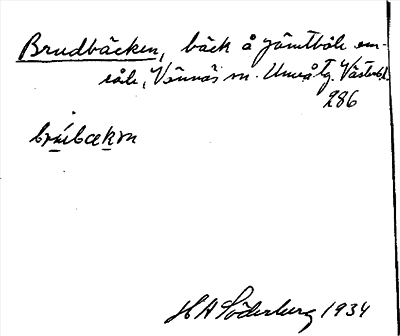 Brudbäcken, bäck å Jämtböle om-
råde, Vännäs sn. Umeå tg. Västerb.
286
brúbækɳ
H A Söderberg 1934